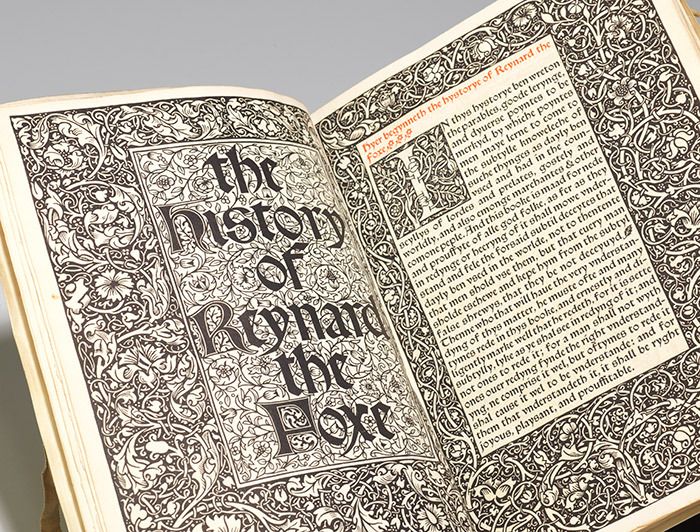 the
history
of
Reynard
the
Foxe
Hyer begynneth the hystorye of Reynard the
Foxe
thys hystorye ben wreton
the parables, goode lerynge,
and dyverse poyntes to be
merkyd, by whiche poyntes
men maye lerne to come to
the subtylle knoweleche of
suche thynges as dayly ben
used and had in the coun
seyllys of lordes and prelates, gostly and
worldly, and also emonge marchantes & other
comone peple. And this booke is maad for nede
and prouffyte of alle god folke, as fer as they in
redynge or heeryng of it shall mowe understande
and fele the forsaid subtyl deceytes that
dayly ben used in the worlde, not to thentente
that men shold use them, but that every man
sholde eschewe and kepe hym from the subtyl
false shrewys, that they be not deceyved.
Thenne who that wyll have the very understan
dyng of this mater, he muste ofte and many
tymes rede in thys booke, and ernestly and dy
lygently marke well that he redeth, For it is sette
subtylly, lyke as ye shal see in redyng of it; and
not ones to rede it; For a man shal not wyth
ones over redyng fynde the ryght understand
ing, ne comprise it wel, but oftymes to rede it
shal cause it wel to be understande; and for
them that understandeth it, it shall be ryght
joyous, playsant, and prouffitable.